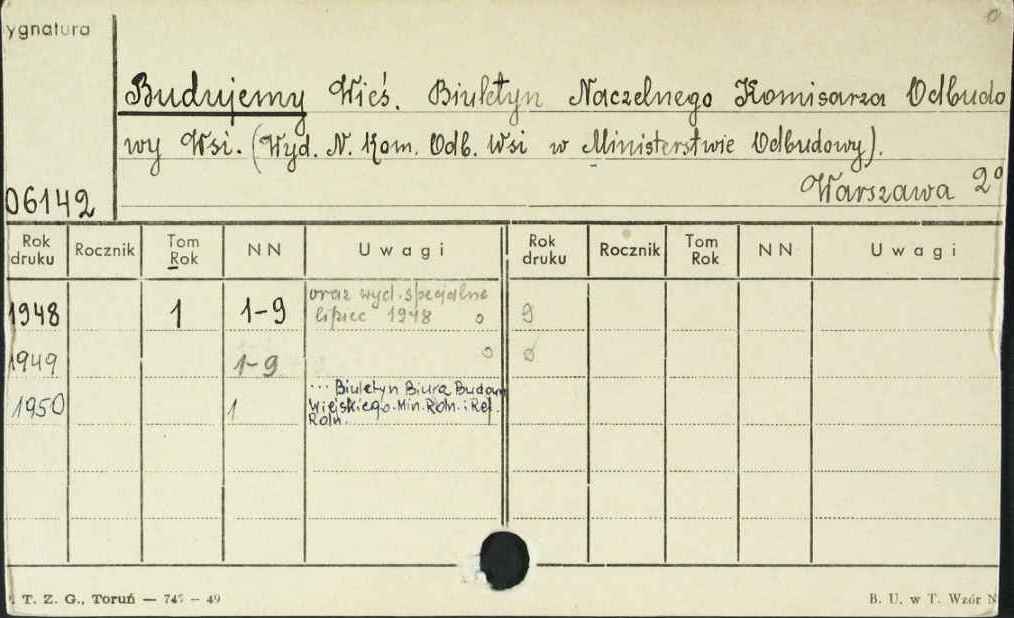 ygnatura
Budujemy Wieś. Biuletyn Naczelnego Komisarza Odbudo
wy Wsi. (Wyd. N. Kom. Odb. Wsi w Ministerstwie Odbudowy).
06142
Warszawa 2°
Rok druku Rocznik Tom Rok NN Uwagi Rok druku Rocznik Tom Rok NN Uwagi
1948 1 1-9 oraz wyd. specjalne
lipiec 1948 o 9
1949 1-9 o ø
1950 1 ... Biuletyn Biura Budown
Wiejskiego. Min. Roln. i Ref.
Roln.
T. Z. G., Toruń — 747 – 49
B. U. w T. Wzór N